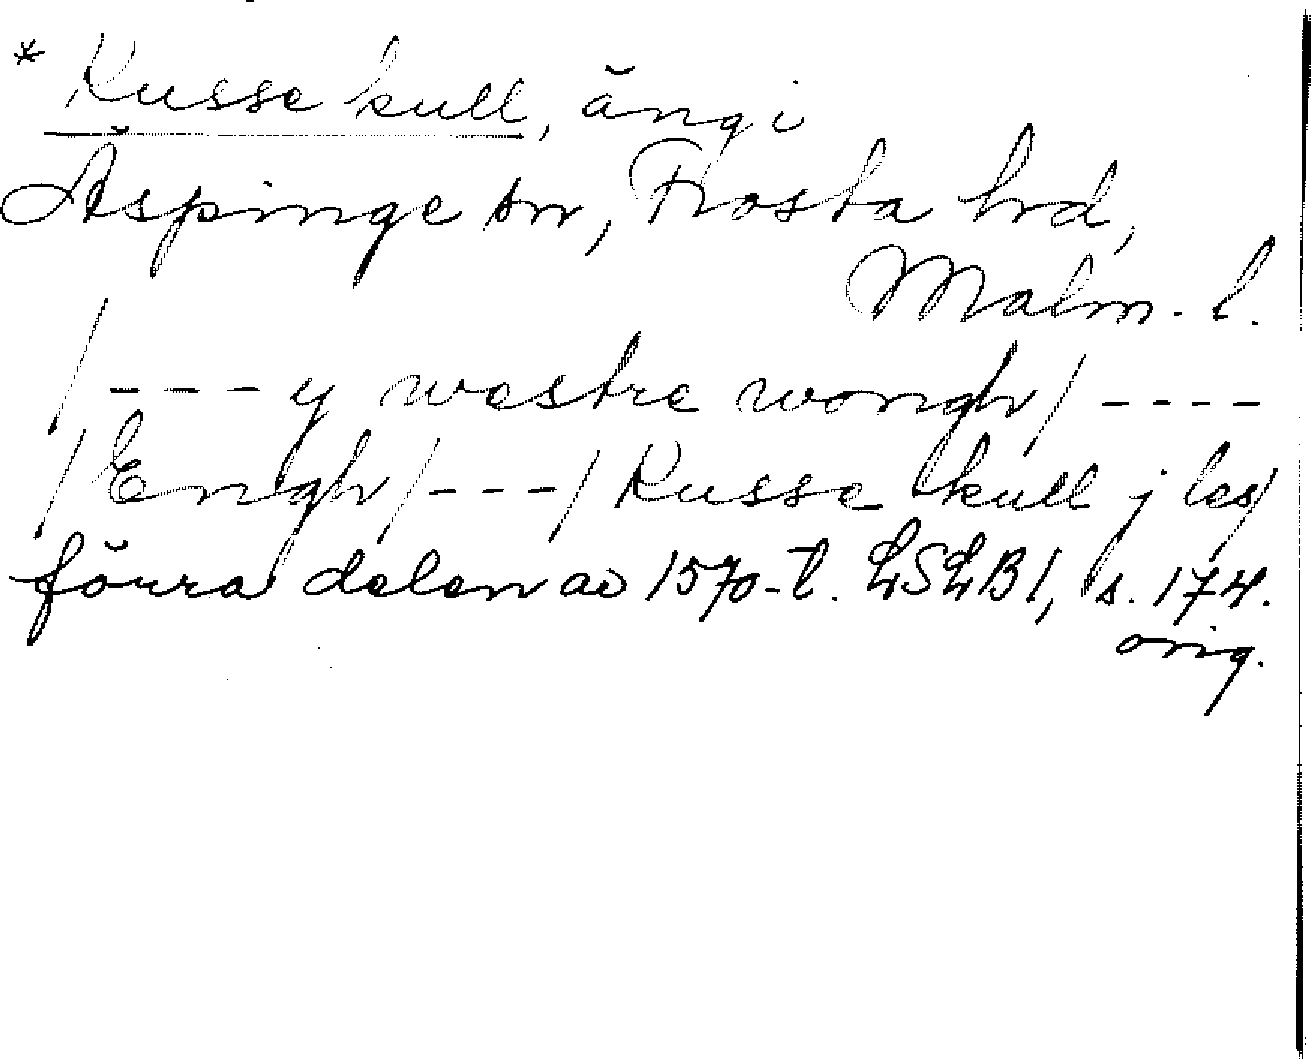 * Kusse kull, äng i
Äspinge sn, Frosta hrd,
Malm. l.
/---y westre wongh/----
/Engh/---/Kusse kull j les/
förra delen av 1570-t. LSLB1, s. 174.
orig.